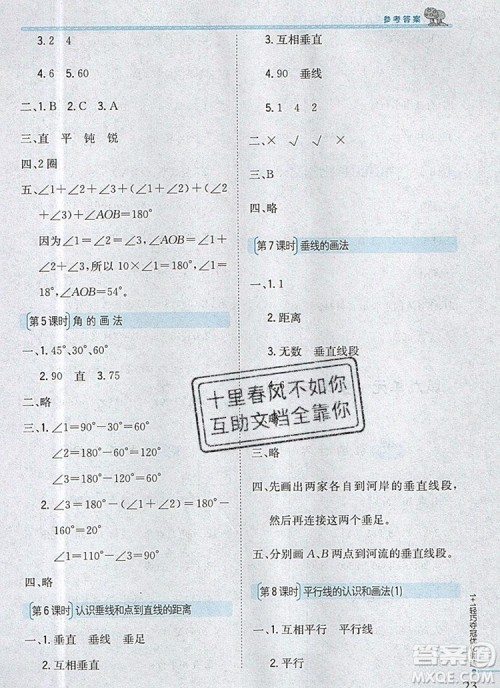 参考答案
3. 2　4
4. 6　5. 60
二、1. B　2. C　3. A
三、直　平　钝　锐
四、2圈
五、∠1+∠2+∠1+∠2+(∠1+∠2)×
3+(∠1+∠2)×5=180°
因为∠1+∠2=∠AOB
所以∠1+∠2+∠AOB=180°
因为∠1+∠2=(∠1+∠2)×
8+∠2，所以10×∠2=180°
第5课时　角的画法
一、1. 45°、30°、60°
2. 90　直　3. 75
二、略
三、∠1=90°-30°=60°
∠2=180°-60°=120°
∠3=180°-120°=60°
∠2=∠3=∠4=180°-
160°=20°
∠1=180°-20°=160°
四、略
第6课时　认识垂线和点到直线的距离
一、1. 垂直　垂线　垂足
2. 互相垂直
3. 互相垂直
4. 90　垂线
5. 1　4　2
二、×　√　√　×
三、B
四、略
第7课时　垂线的画法
一、1. 1
2. 距离
3. 无数　垂直线段
三、略
四、先画出两家各自到河岸的垂直线段，
再连接出两个垂足。
五、分别画A、B两点到河流的垂直线段。
第8课时　平行线的认识和画法(1)
一、1. 互相平行　平行线
2. 平行
十里春风不如你
互助文档全靠你
23
作业精灵
MXQE.COM